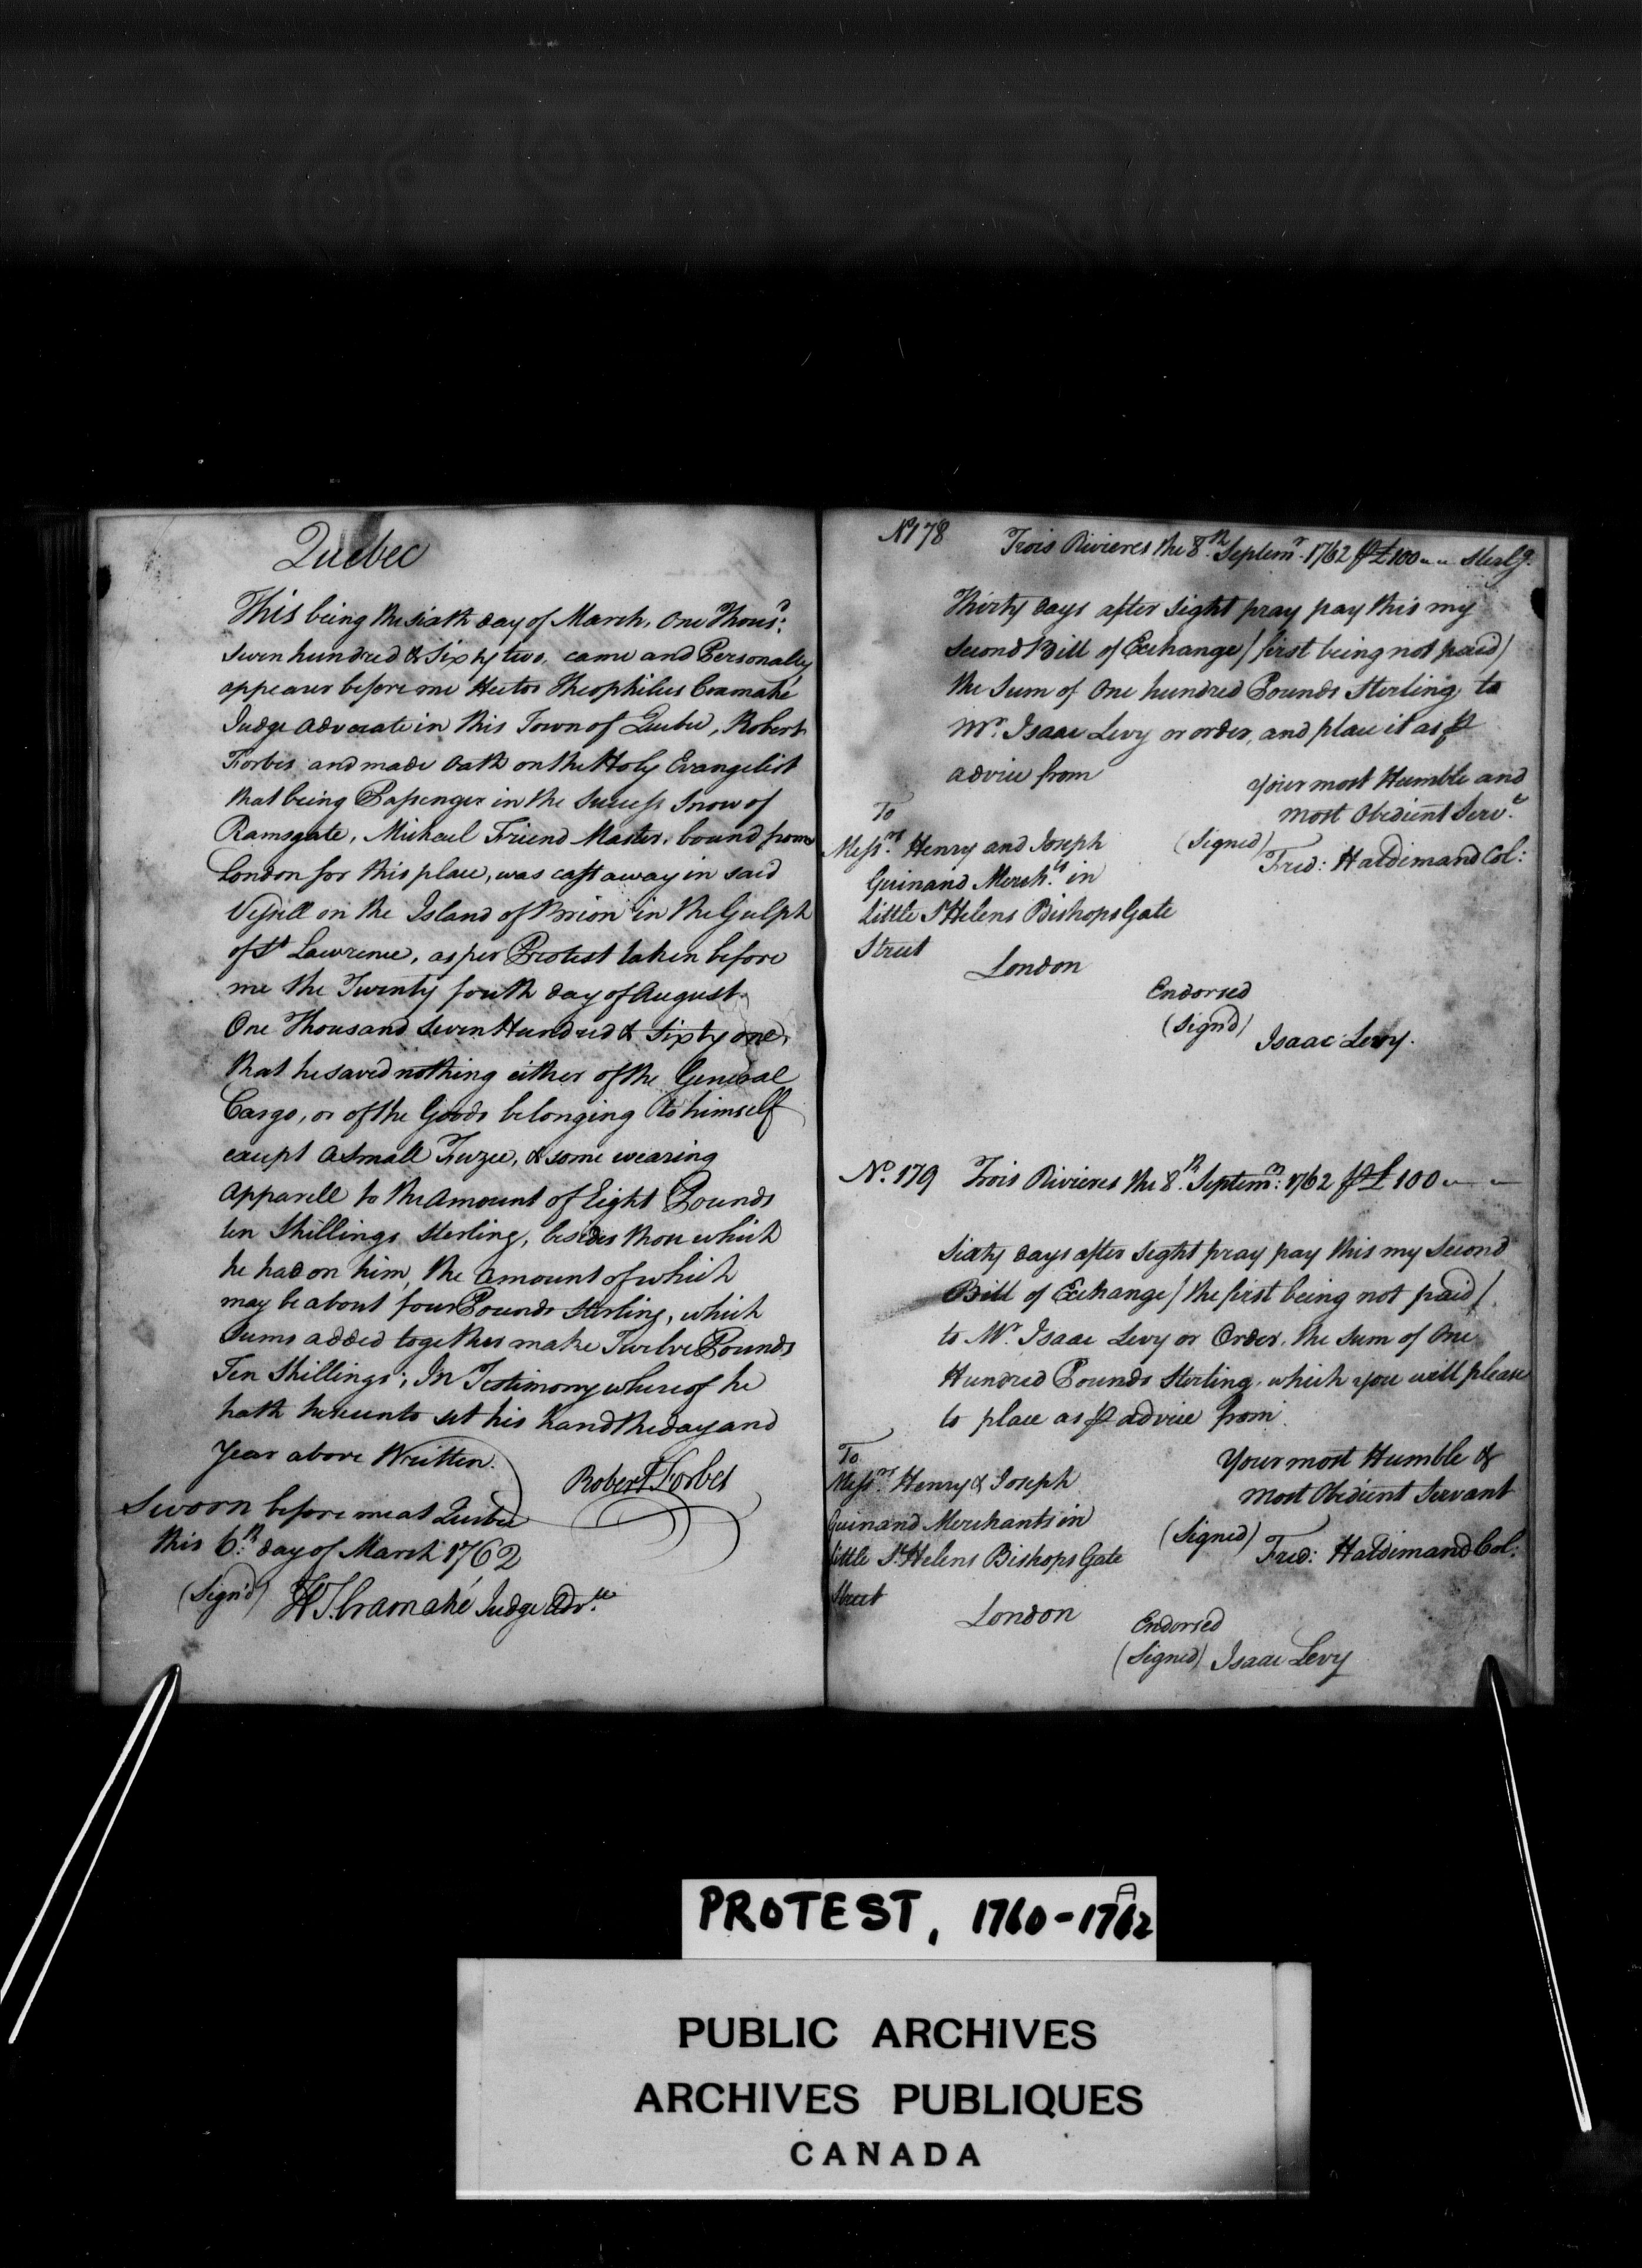 Quebec
This being the sixth day of March, One Thous.d
seven hundred & Sixty two, came and Personally
appeared before me Hector Theophilus Cramahé
Judge Advocate in this Town of Quebec, Robert
Forbes and made Oath on the Holy Evangelist
that being Passenger in the Success Snow of
Ramsgate, Michael Friend Master, bound from
London for this place, was cast away in said
Vessell on the Island of Brion in the Gulph
of St Lawrence, as per Protest taken before
me the Twenty fourth day of August
One Thousand seven Hundred & Sixty one,
that he saved nothing either of the General
Cargo, or of the Goods belonging to himself
except a small Fuzee, & some wearing
Apparell to the amount of Eight Pounds
ten Shillings Sterling, besides those which
he had on him, the amount of which
may be about four Pounds Sterling, which
Sums added together make Twelve Pounds
Ten Shillings; In Testimony whereof he
hath hereunto set his hand the day and
Year above Written.
Robert Forbes
Sworn before me at Quebec
this 6.th day of March 1762
(Sign'd) H T. Cramahé Judge Adv.te
No 178 Trois Rivieres the 8.th Septem.r 1762 ⅌ £100 " " Sterlg.
Thirty days after sight pray pay this my
second Bill of Exchange / first being not paid /
the Sum of One hundred Pounds Sterling to
Mr. Isaac Levy or order, and place it as ⅌
advice from
Your most Humble and
most Obedient Serv.t
(Signed) Fred: Haldimand Col:
To
Mess.rs Henry and Joseph
Guinand Merch.ts in
Little St Helens Bishops Gate
Street
London
Endorsed
(Sign'd) Isaac Levy.
No. 179 Trois Rivieres the 8.th Septem.r: 1762 ⅌ £100 " "
Sixty days after sight pray pay this my second
Bill of Exchange / the first being not paid /
to Mr. Isaac Levy or Order, the Sum of One
Hundred Pounds Sterling, which you will please
to place as ⅌ advice from
Your most Humble &
most Obedient Servant
(Signed) Fred: Haldimand Col:
To
Mess.rs Henry & Joseph
Guinand Merchants in
Little St Helens Bishops Gate
Street
London
Endorsed
(Signed) Isaac Levy
PROTEST, 1760-1762
PUBLIC ARCHIVES
ARCHIVES PUBLIQUES
CANADA